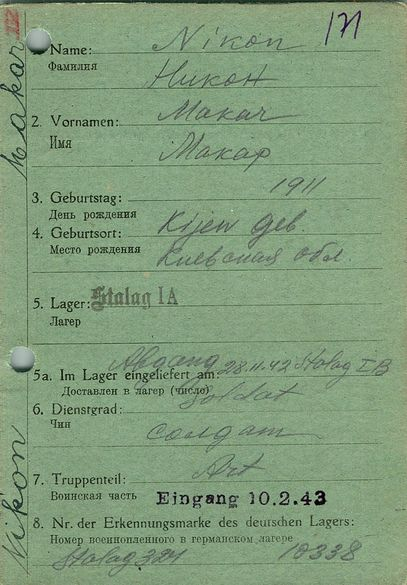 171
1. Name: Nikon
Фамилия
Никон
2. Vornamen: Makar
Имя
Макар
3. Geburtstag: 1911
День рождения
4. Geburtsort: Kijew geb.
Место рождения Киевская обл.
5. Lager: Stalag IA
Лагерь
Abgang 28.11.42 Stalag IB
5a. Im Lager eingeliefert am:
Доставлен в лагерь (число)
Soldat
6. Dienstgrad:
Чин солдат
Art
7. Truppenteil:
Воинская часть Eingang 10.2.43
8. Nr. der Erkennungsmarke des deutschen Lagers:
Номер военнопленного в германском лагере
Stalag 324 10338
Nikon Makar